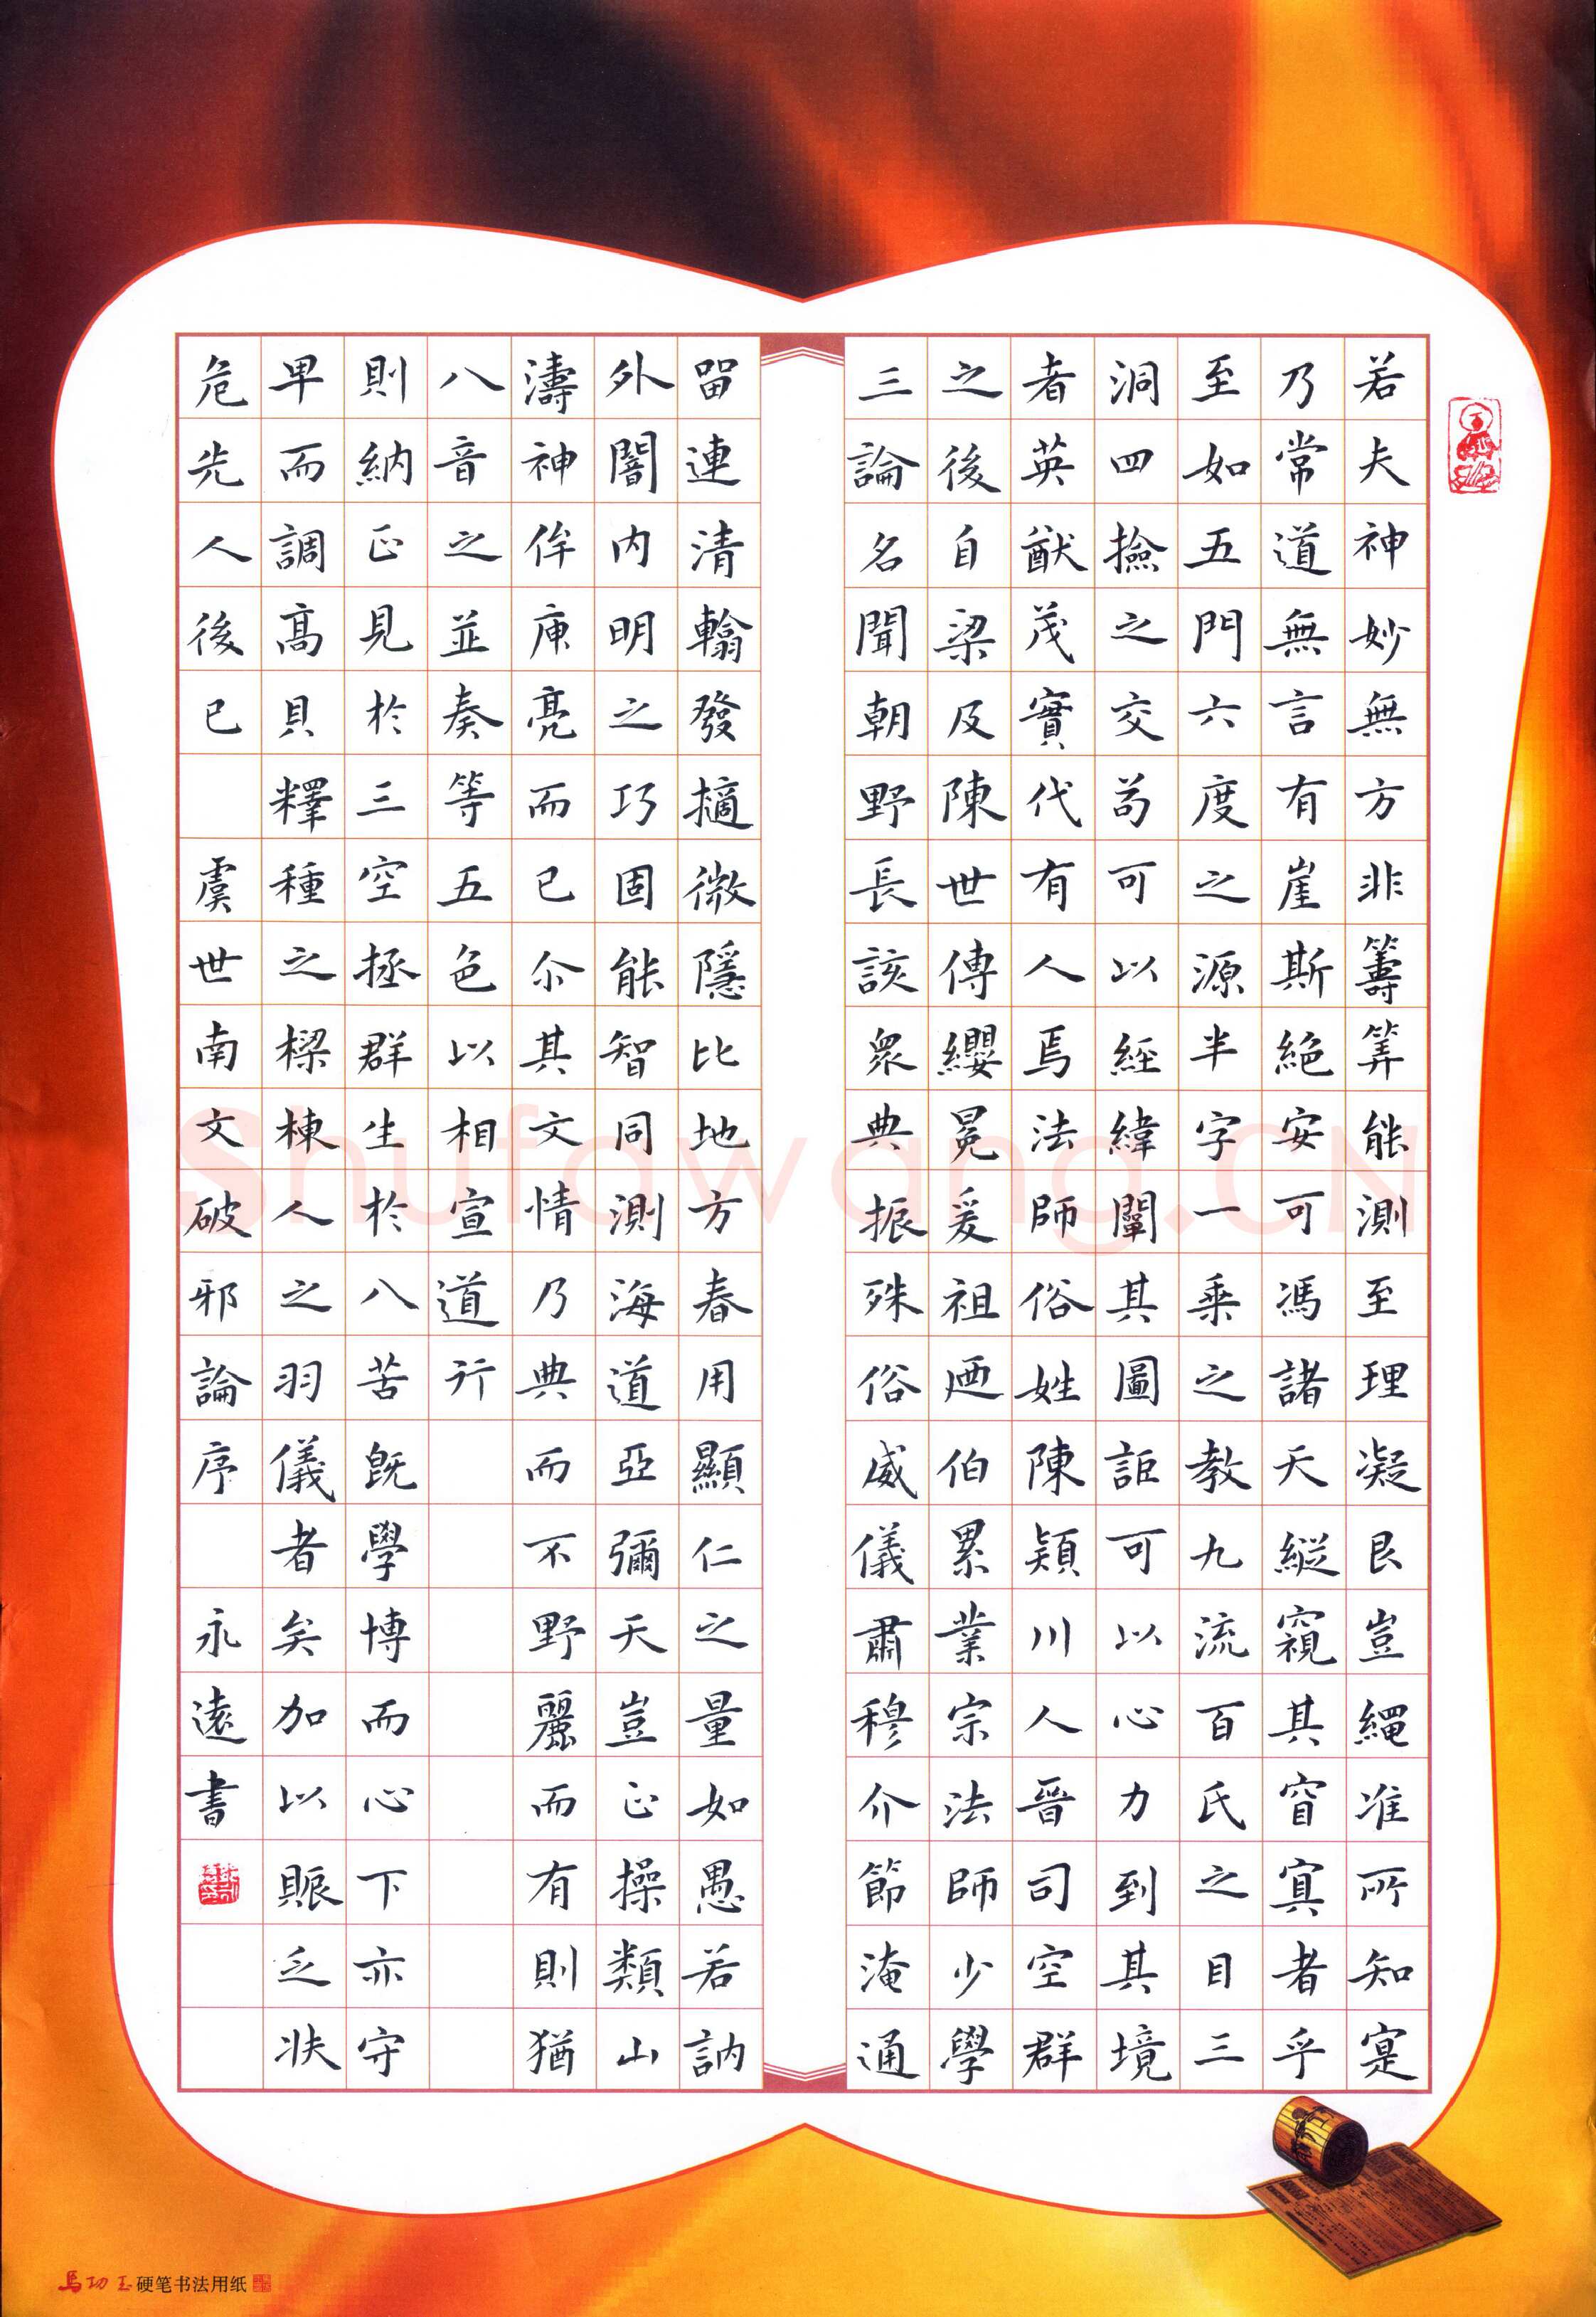 若夫神妙無方非籌筭能測至理凝邈豈繩准所知寔
乃常道無言有崖斯絕安可馮諸天縱窺其窅寘者乎
至如五門六度之源半字一乘之教九流百氏之目三
洞四撿之交苟可以經緯闡其圖詎可以心力到其境
者英猷茂實代有人焉法師俗姓陳潁川人晉司空群
之後自梁及陳世傳纓冕爰祖迺伯累業宗法師少學
三論名聞朝野長該衆典振殊俗威儀肅穆介節淹通
留連清翰發擿微隱比地方春用顯仁之量如愚若訥
外闇內明之巧固能智同測海道亞彌天豈止操類山
濤神侔庾亮而已尒其文情乃典而不野麗而有則猶
八音之並奏等五色以相宣道行
則納正見於三空拯群生於八苦既學博而心下亦守
卑而調高貝釋種之樑棟人之羽儀者矣加以賑乏扶
危先人後已 虞世南文破邪論序 永遠書
Shufawang.CN
硬笔书法用纸